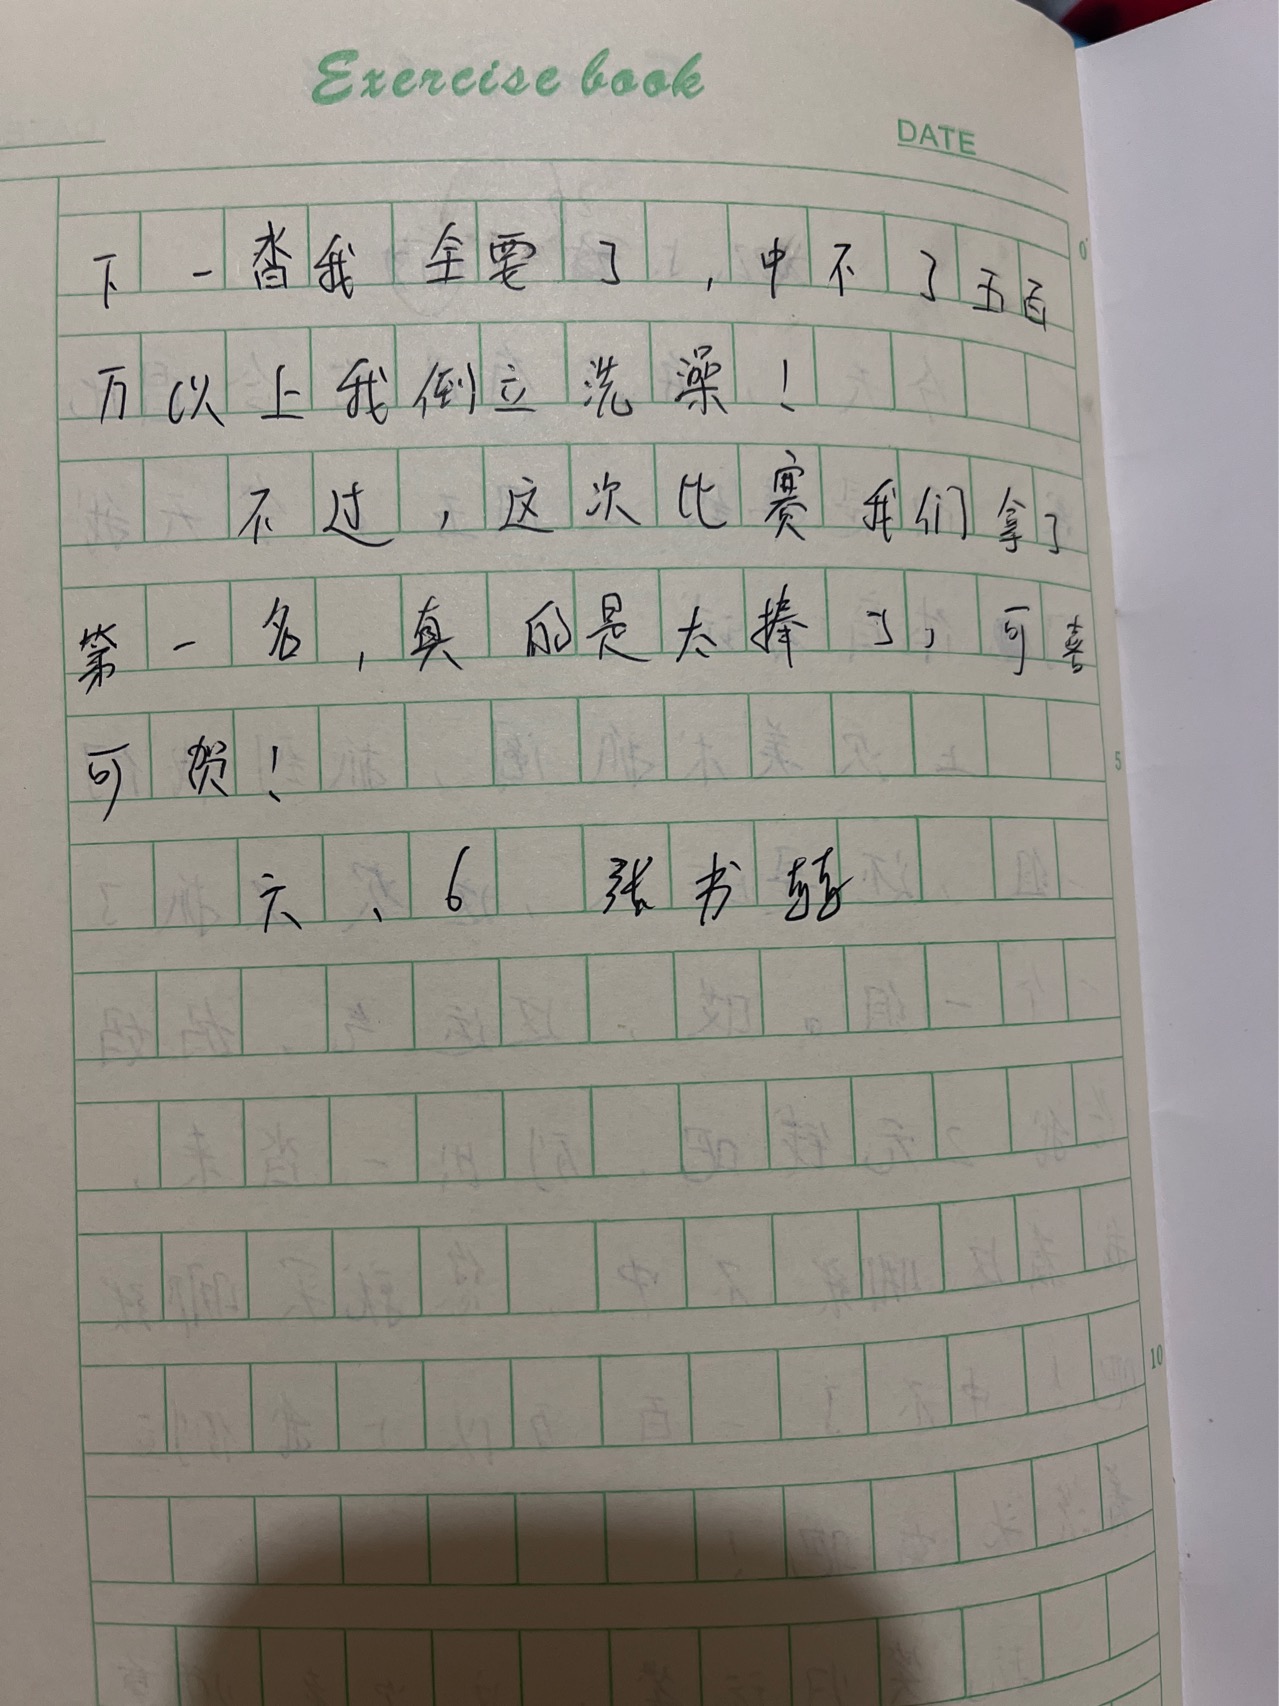 Exercise book
DATE
下一沓我全要了，中不了五百
万以上我倒立洗澡！
不过，这次比赛我们拿了
第一名，真的是太捧了，可喜
可贺！
六、6 张书
0
5
10